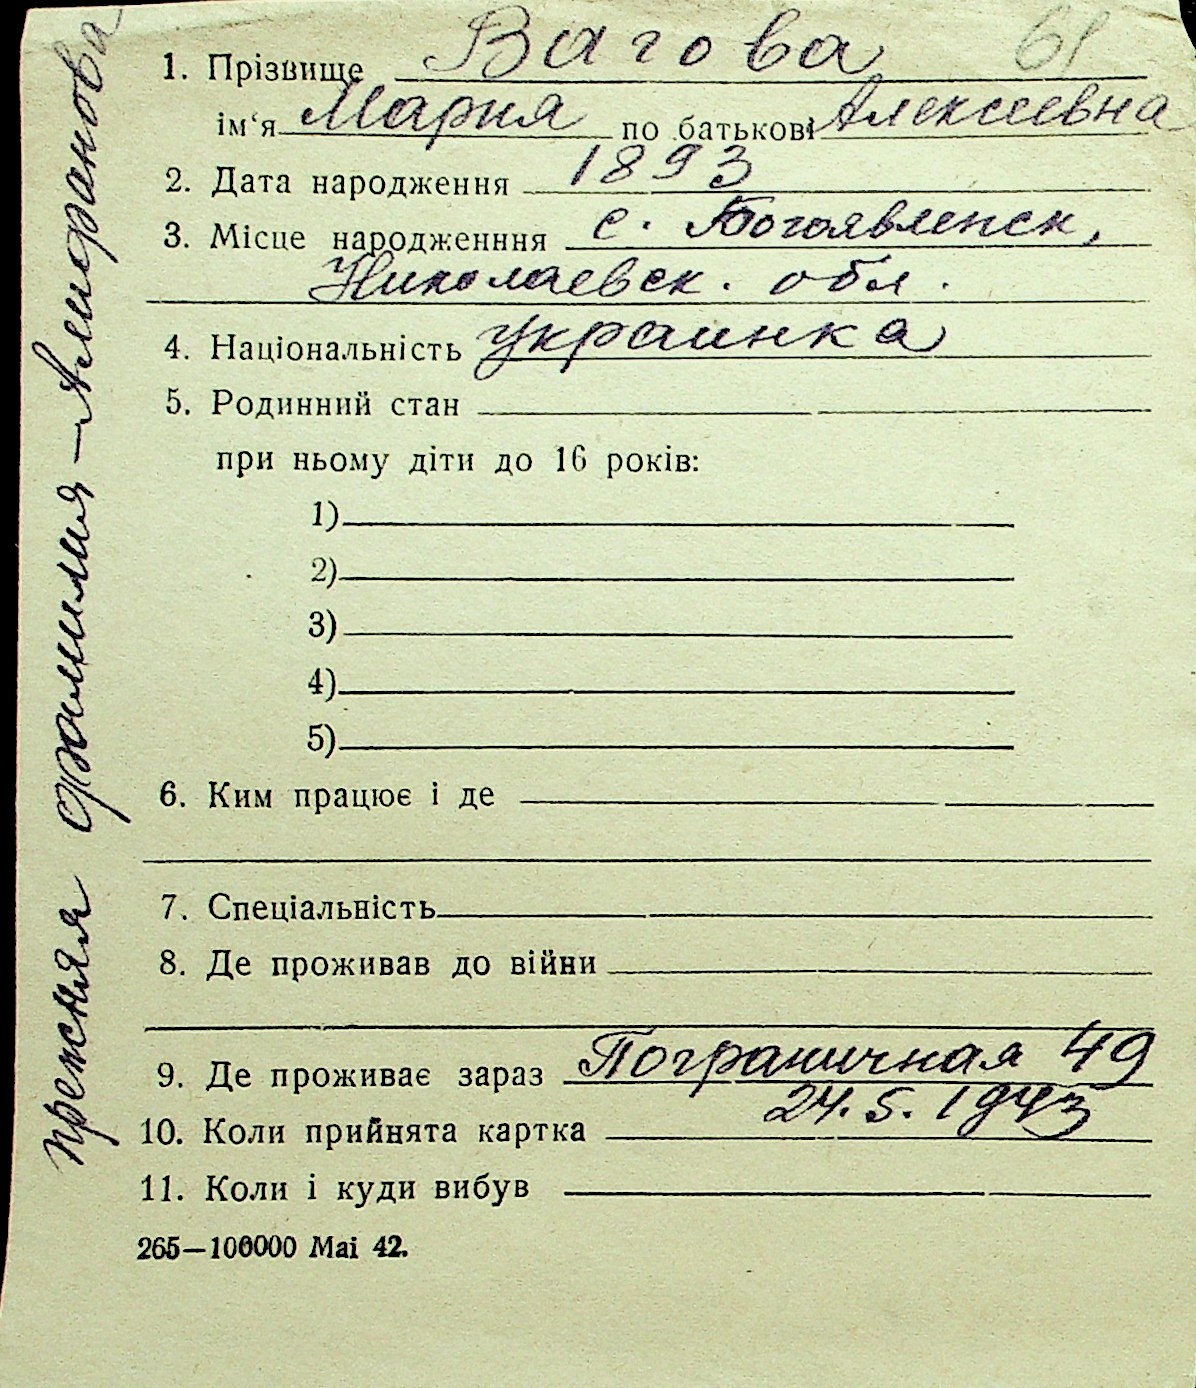 61
1. Прізвище Вагова
ім‘я Мария по батькові Алексеевна
2. Дата народження 1893
3. Місце народженння с. Богоявленск,
Николаевск. обл.
4. Національність украинка
5. Родинний стан
при ньому діти до 16 років:
1)
2)
3)
4)
5)
6. Ким працює і де
7. Спеціальність
8. Де проживав до війни
9. Де проживає зараз Пограничная 49
10. Коли прийнята картка 24.5.1943
11. Коли і куди вибув
265—100000 Mai 42.
прежняя фамилия —